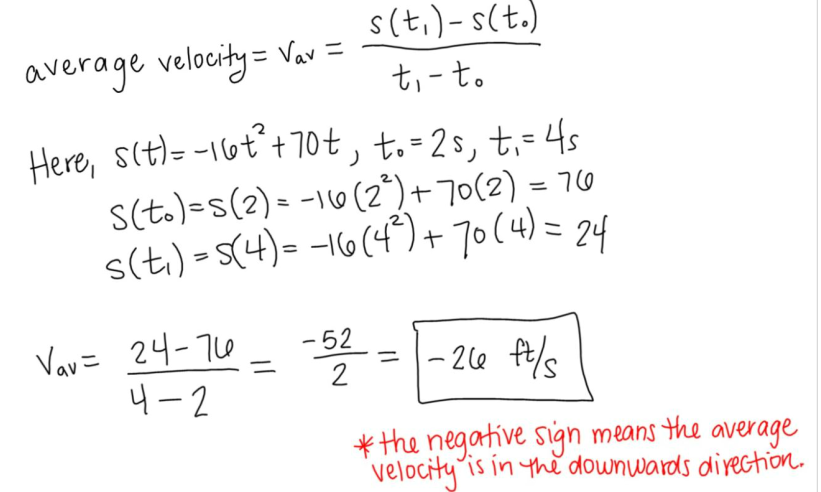 average velocity = Vav = (s(t₁) - s(t₀)) / (t₁ - t₀)
Here, s(t) = -16t² + 70t, t₀ = 2s, t₁ = 4s
s(t₀) = s(2) = -16(2²) + 70(2) = 76
s(t₁) = s(4) = -16(4²) + 70(4) = 24
Vav = (24 - 76) / (4 - 2) = -52 / 2 = -26 ft/s
* the negative sign means the average
velocity is in the downwards direction.